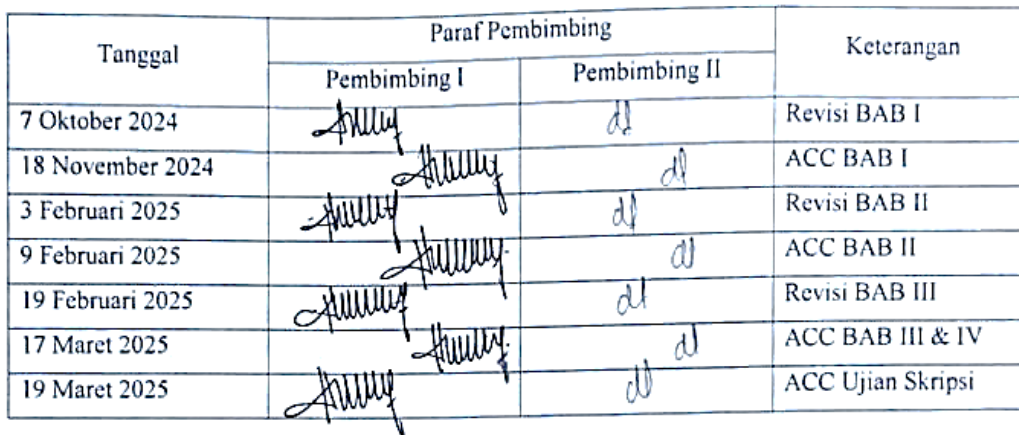 Tanggal Paraf Pembimbing Keterangan
Pembimbing I Pembimbing II
7 Oktober 2024 Revisi BAB I
18 November 2024 ACC BAB I
3 Februari 2025 Revisi BAB II
9 Februari 2025 ACC BAB II
19 Februari 2025 Revisi BAB III
17 Maret 2025 ACC BAB III & IV
19 Maret 2025 ACC Ujian Skripsi